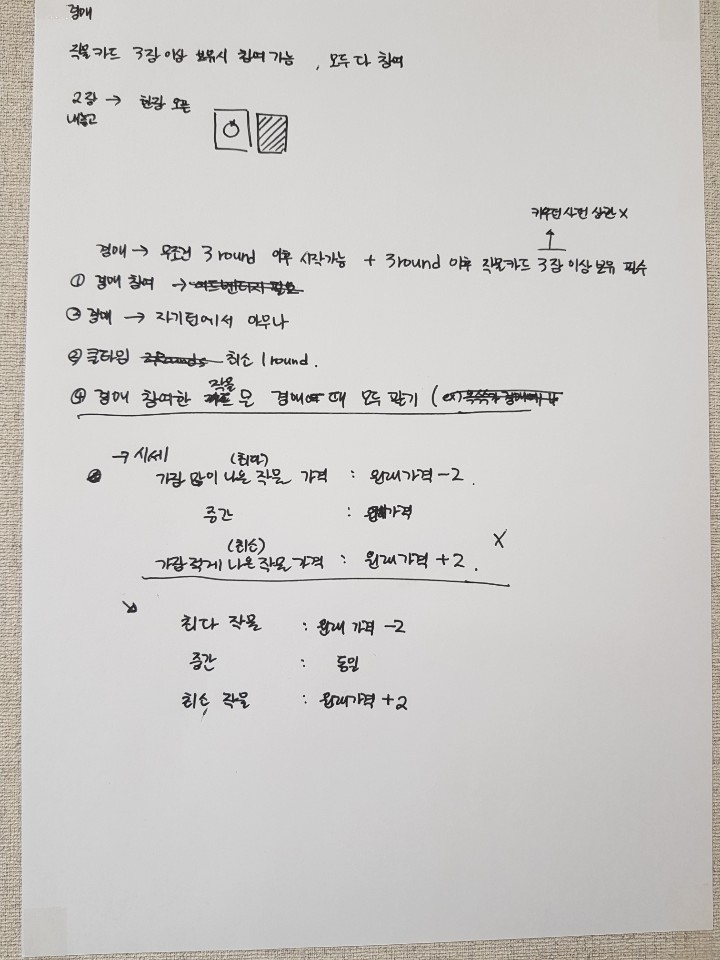 경매
작물카드 3장 이상 보유시 참여 가능, 모두 다 참여
2장 → 한장 오픈
내놓고
키우던 사던 상관 X
경매 → 무조건 3round 이후 시작가능 + 3round 이후 작물카드 3장 이상 보유 필수
① 경매 참여 → 어드벤티지 필요
② 경매 → 자기턴에서 아무나
③ 쿨타임 2Rounds 최소 1round.
작물
④ 경매 참여한 카드은 경매 때 모두 팔기 (ex)
→ 시세
(최다)
가장 많이 나온 작물 가격 : 원래가격 -2.
중간 : 원래가격
(최소)
가장 적게 나온 작물 가격 : 원래가격 +2.
X
최다 작물 : 원래 가격 -2
중간 : 동일
최소 작물 : 원래가격 +2